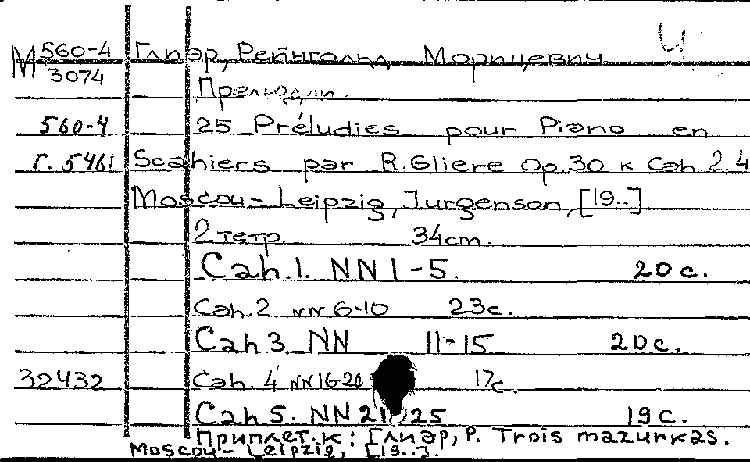 M 560-4/3074 Глиэр, Рейнгольд Морицевич
Прелюдии.
560-4 25 Préludies pour Piano en
Г. 5461 5cahiers par R.Gliere Op.30 к Cah 2 4
Moscou - Leipzig, Jurgenson, [19..]
2 тетр. 34cm.
Cah.1. NN 1-5. 20 c.
Cah.2 NN 6-10 23c.
Cah 3. NN 11-15 20c.
32432 Cah. 4 NN 16-20 17c.
Cah 5. NN 21 25 19 c.
Приплет. к: Глиэр, Р. Trois mazurkas.
Moscou - Leipzig, [19..].